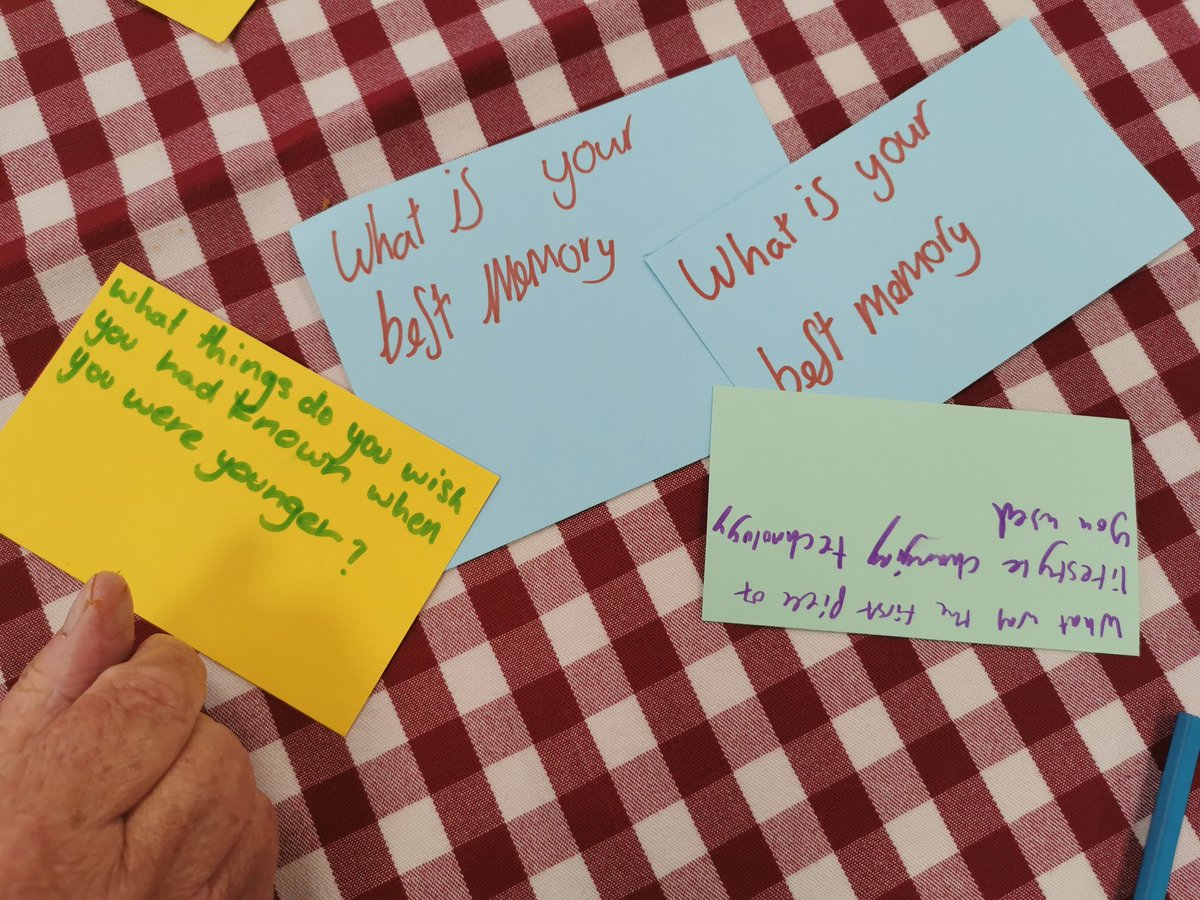 What is your
best Memory
What is your
best memory
what things do you wish
you had known when
you were younger?
What was the first piece of
lifestyle changing technology
you used